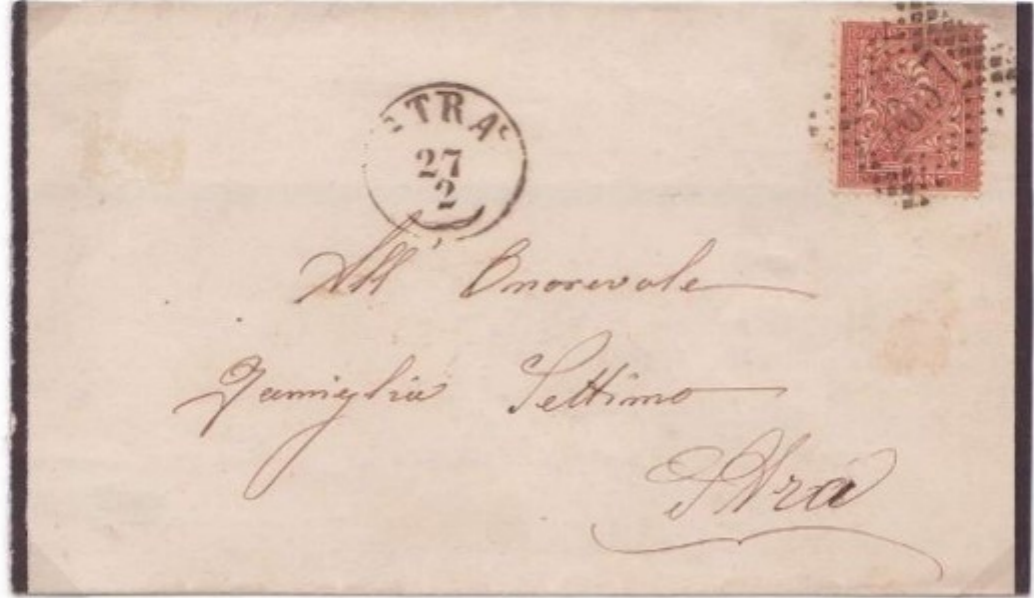 STRA
27
2
All' Onorevole
Famiglia Settimo
Strà